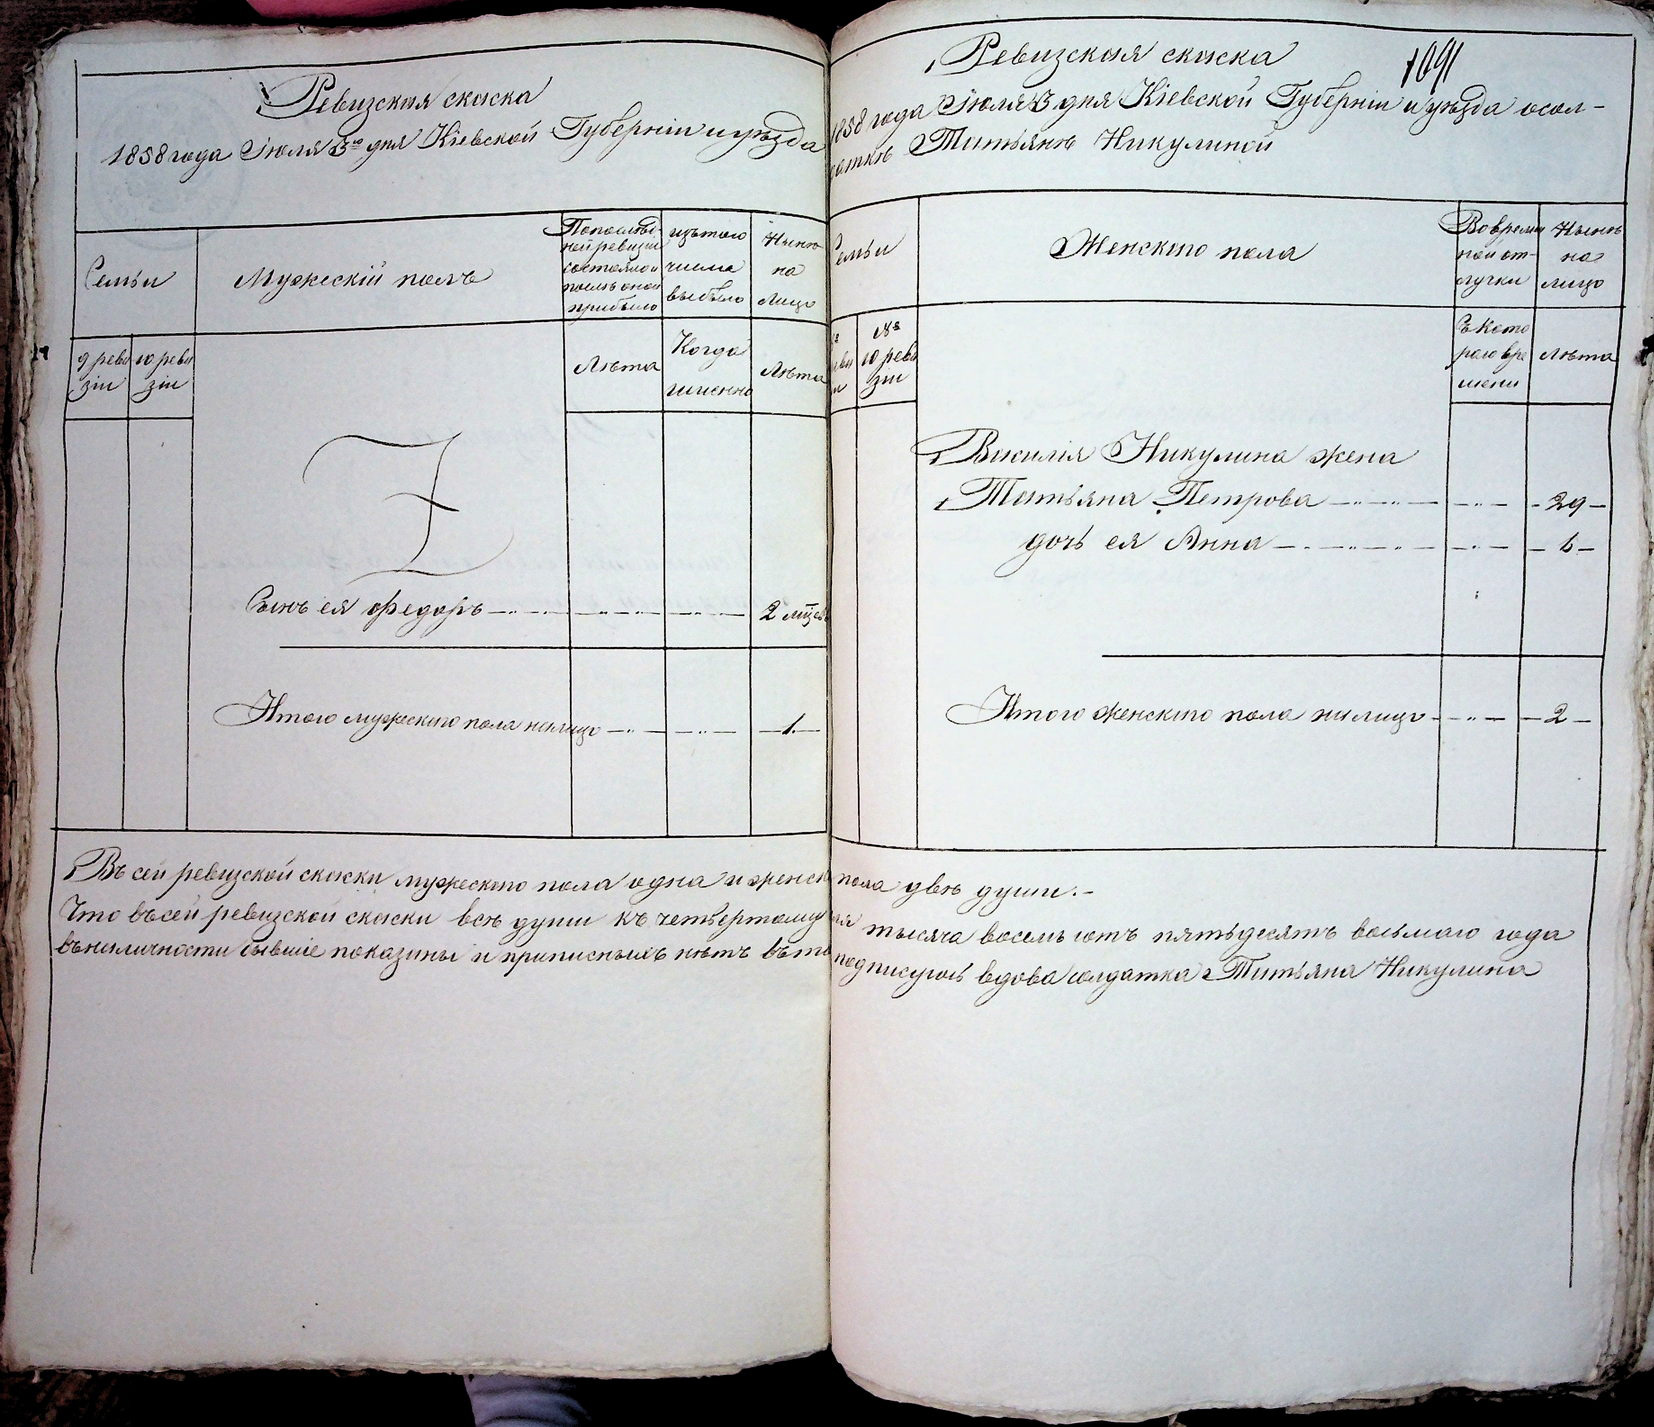 Ревизская скаска
1858 года Іюля 3го дня Кіевской Губерніи и уѣзда
Семьи
Мужескій полъ
По послѣд-
ней ревизіи
состояло и
послѣ оной
прибыло
изъ того
числа
выбыло
Нынѣ
на
лицо
9 реви
зіи
10 реви
зіи
Лѣта
Когда
именно
Лѣта
Сынъ ея Федоръ
2 мѣс
Итого мужескаго пола налицо
1
Въ сей ревизской скаски мужескаго пола одна и женск
Что въ сей ревизской скаски всѣ души къ четвертому
въ наличности бывшіе показаны и прописныхъ нѣтъ въ
1091
Ревизская скаска
1858 года Іюля 3 дня Кіевской Губерніи и уѣзда о сол-
даткѣ Татьянѣ Никулиной
Семьи
Женскаго пола
Во времен
ной от-
лучки
Нынѣ
на
лицо
№
10 реви
зіи
Съ кото
раго вре
мени
Лѣта
Василія Никулина жена
Татьяна Петрова 29
дочь ея Анна 6
Итого женскаго пола налицо 2
пола двѣ души.-
тысяча восемьсотъ пятьдесятъ восьмаго года
подписуюсь вдова солдатка Татьяна Никулина